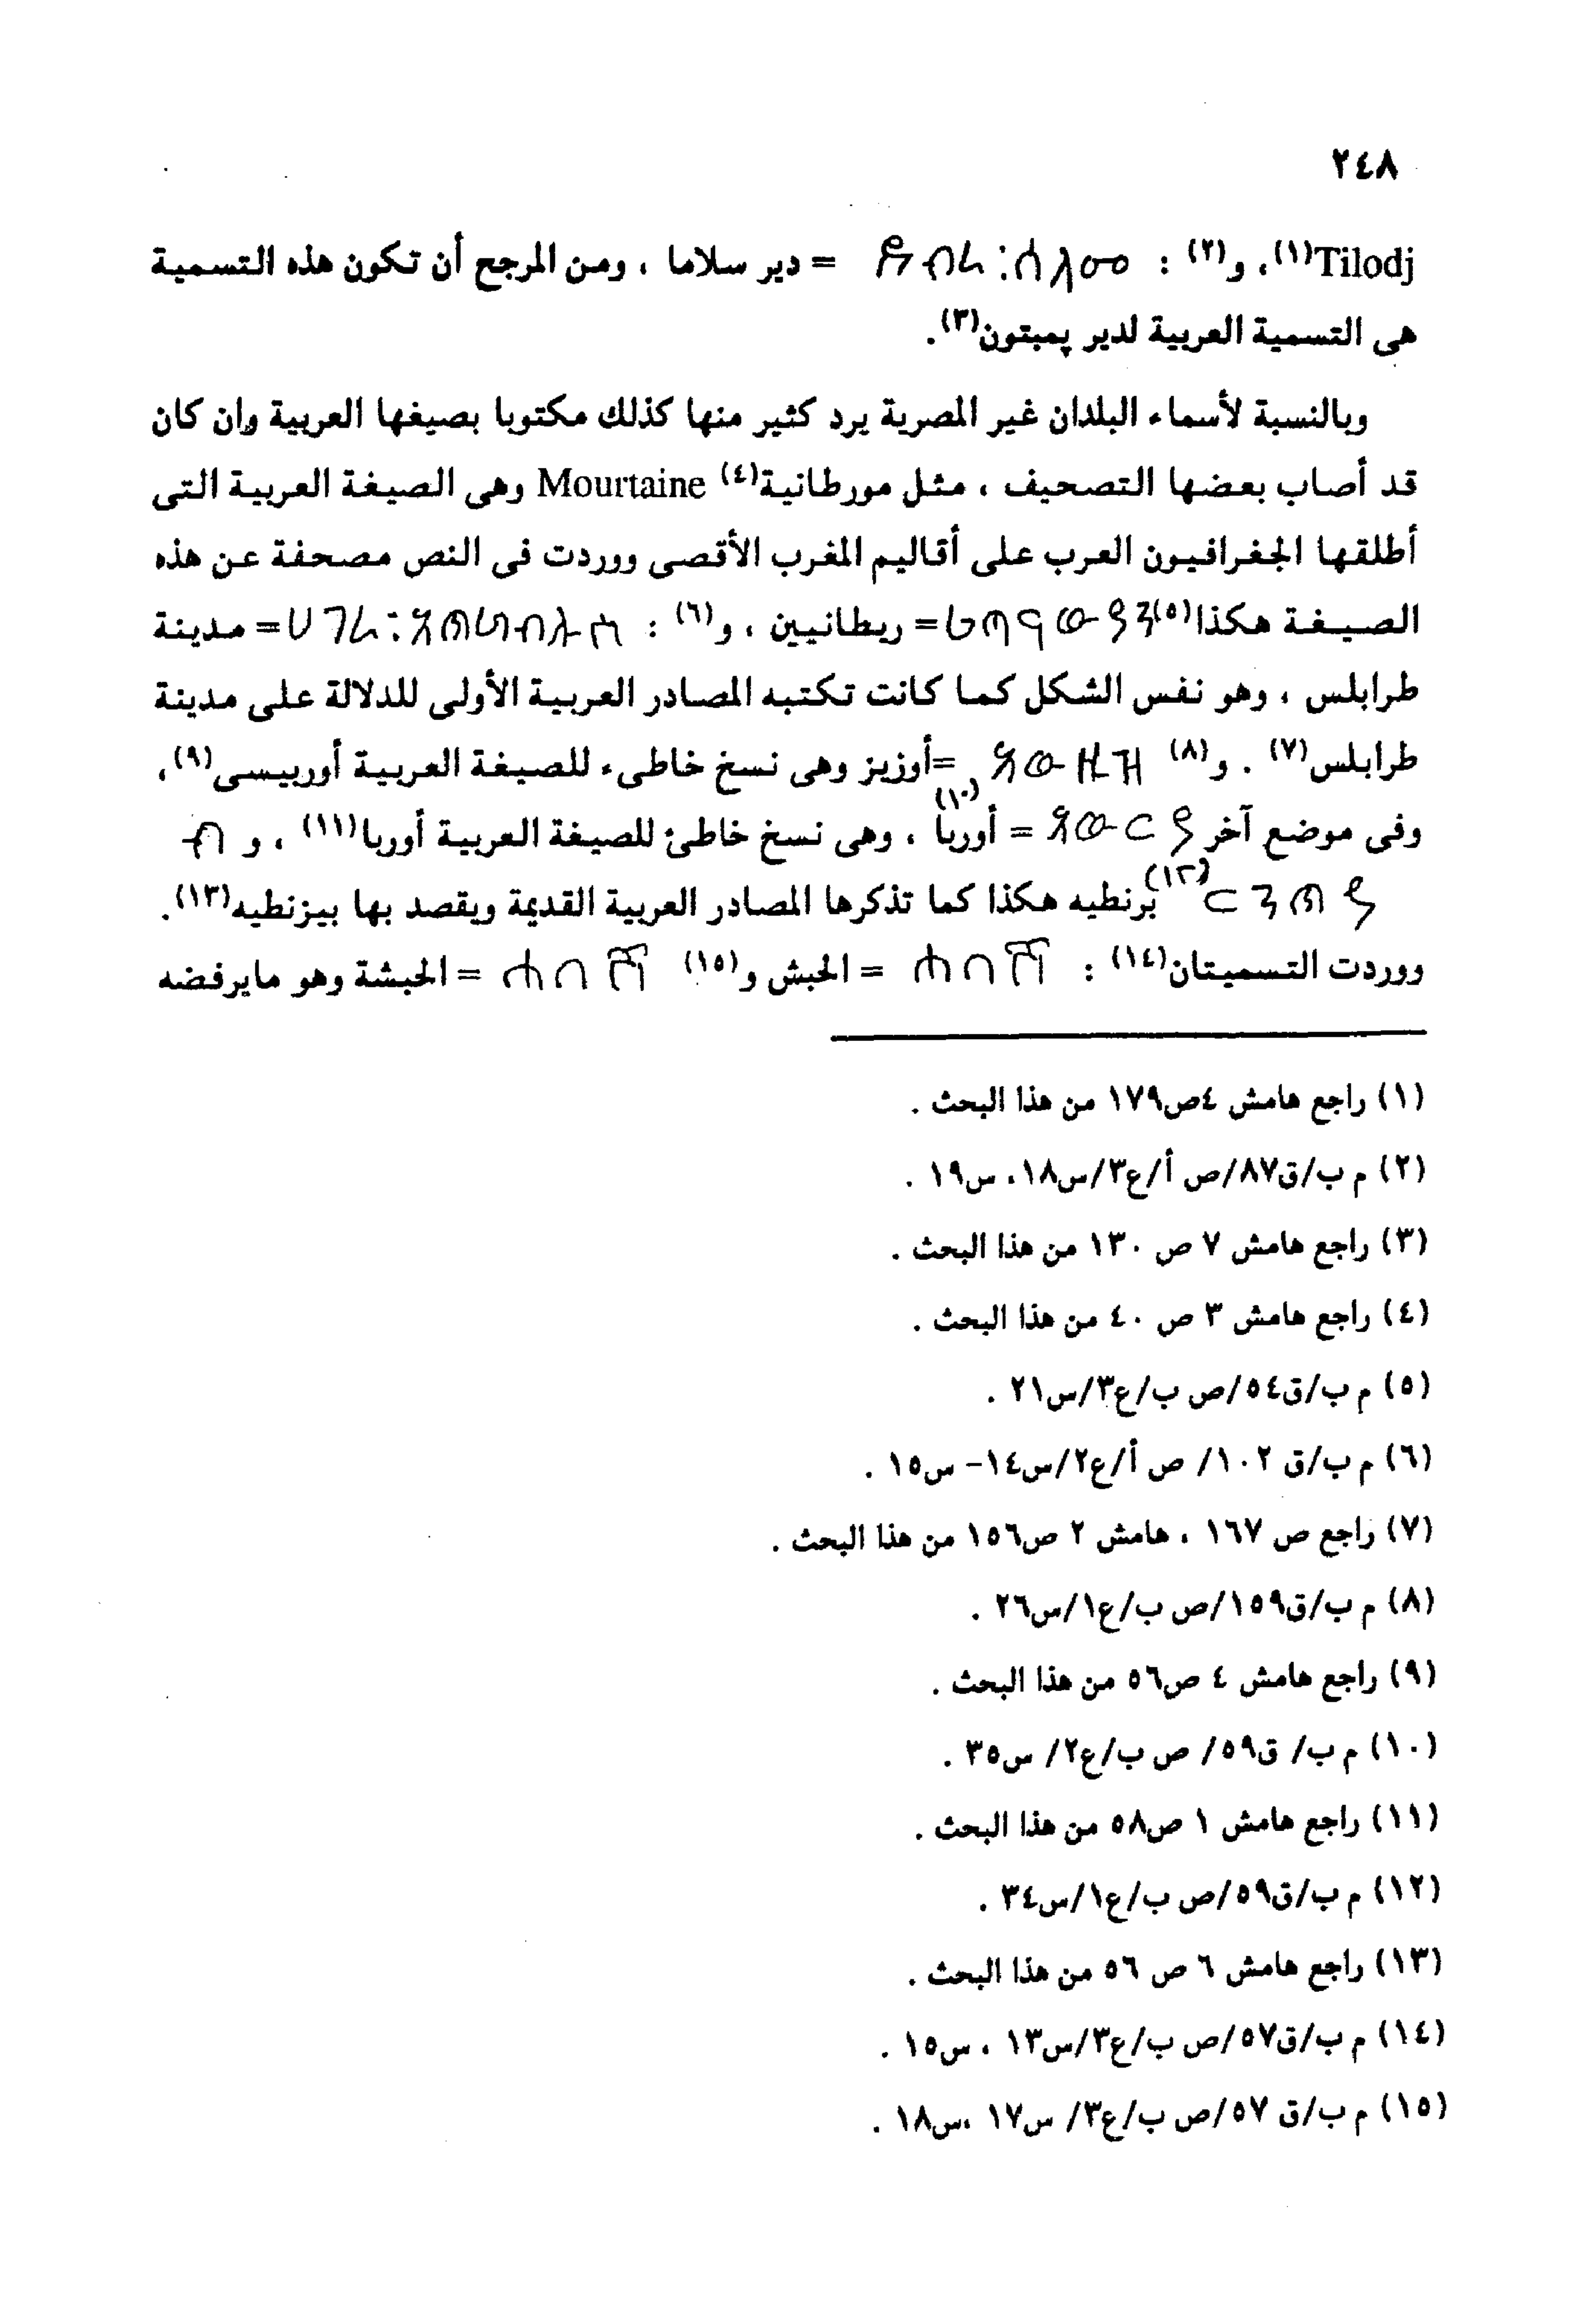 ٢٤٨
Tilodj(١)، و(٢) : = دير سلاما ، ومن المرجح أن تكون هذه التسمية
هى التسمية العربية لدير پمبتون(٣).
وبالنسبة لأسماء البلدان غير المصرية يرد كثير منها كذلك مكتوبا بصيغها العربية وإن كان
قد أصاب بعضها التصحيف ، مثل مورطانية(٤) Mourtaine وهى الصيغة العربية التى
أطلقها الجغرافيون العرب على أقاليم المغرب الأقصى ووردت فى النص مصحفة عن هذه
الصيغة هكذا(٥) = ريطانيين ، و(٦) : = مدينة
طرابلس ، وهو نفس الشكل كما كانت تكتبه المصادر العربية الأولى للدلالة على مدينة
طرابلس(٧) . و(٨) =أوزيز وهى نسخ خاطىء للصيغة العربية أوربيسى(٩)،
وفى موضع آخر = أوربا(١٠) ، وهى نسخ خاطئ للصيغة العربية أوربا(١١) ، و
(١٢) برنطيه هكذا كما تذكرها المصادر العربية القديمة ويقصد بها بيزنطيه(١٣).
ووردت التسميتان(١٤) : ሐበሽ = الحبش و(١٥) ሐበሽ = الحبشة وهو مايرفضه
(١) راجع هامش ٤ص١٧٩ من هذا البحث .
(٢) م ب/ق٨٧/ص أ/ع٣/س١٨، س١٩ .
(٣) راجع هامش ٧ ص ١٣٠ من هذا البحث .
(٤) راجع هامش ٣ ص ٤٠ من هذا البحث .
(٥) م ب/ق٥٤/ص ب/ع٣/س٢١ .
(٦) م ب/ق ١٠٢/ ص أ/ع٢/س١٤- س١٥ .
(٧) راجع ص ١٦٧ ، هامش ٢ ص١٥٦ من هذا البحث .
(٨) م ب/ق١٥٩/ص ب/ع١/س٢٦ .
(٩) راجع هامش ٤ ص٥٦ من هذا البحث .
(١٠) م ب/ ق٥٩/ ص ب/ع٢/ س٣٥ .
(١١) راجع هامش ١ ص٥٨ من هذا البحث .
(١٢) م ب/ق٥٩/ص ب/ع١/س٣٤ .
(١٣) راجع هامش ٦ ص ٥٦ من هذا البحث .
(١٤) م ب/ق٥٧/ص ب/ع٣/س١٣ ، س١٥ .
(١٥) م ب/ق ٥٧/ص ب/ع٣/ س١٧ ،س١٨ .